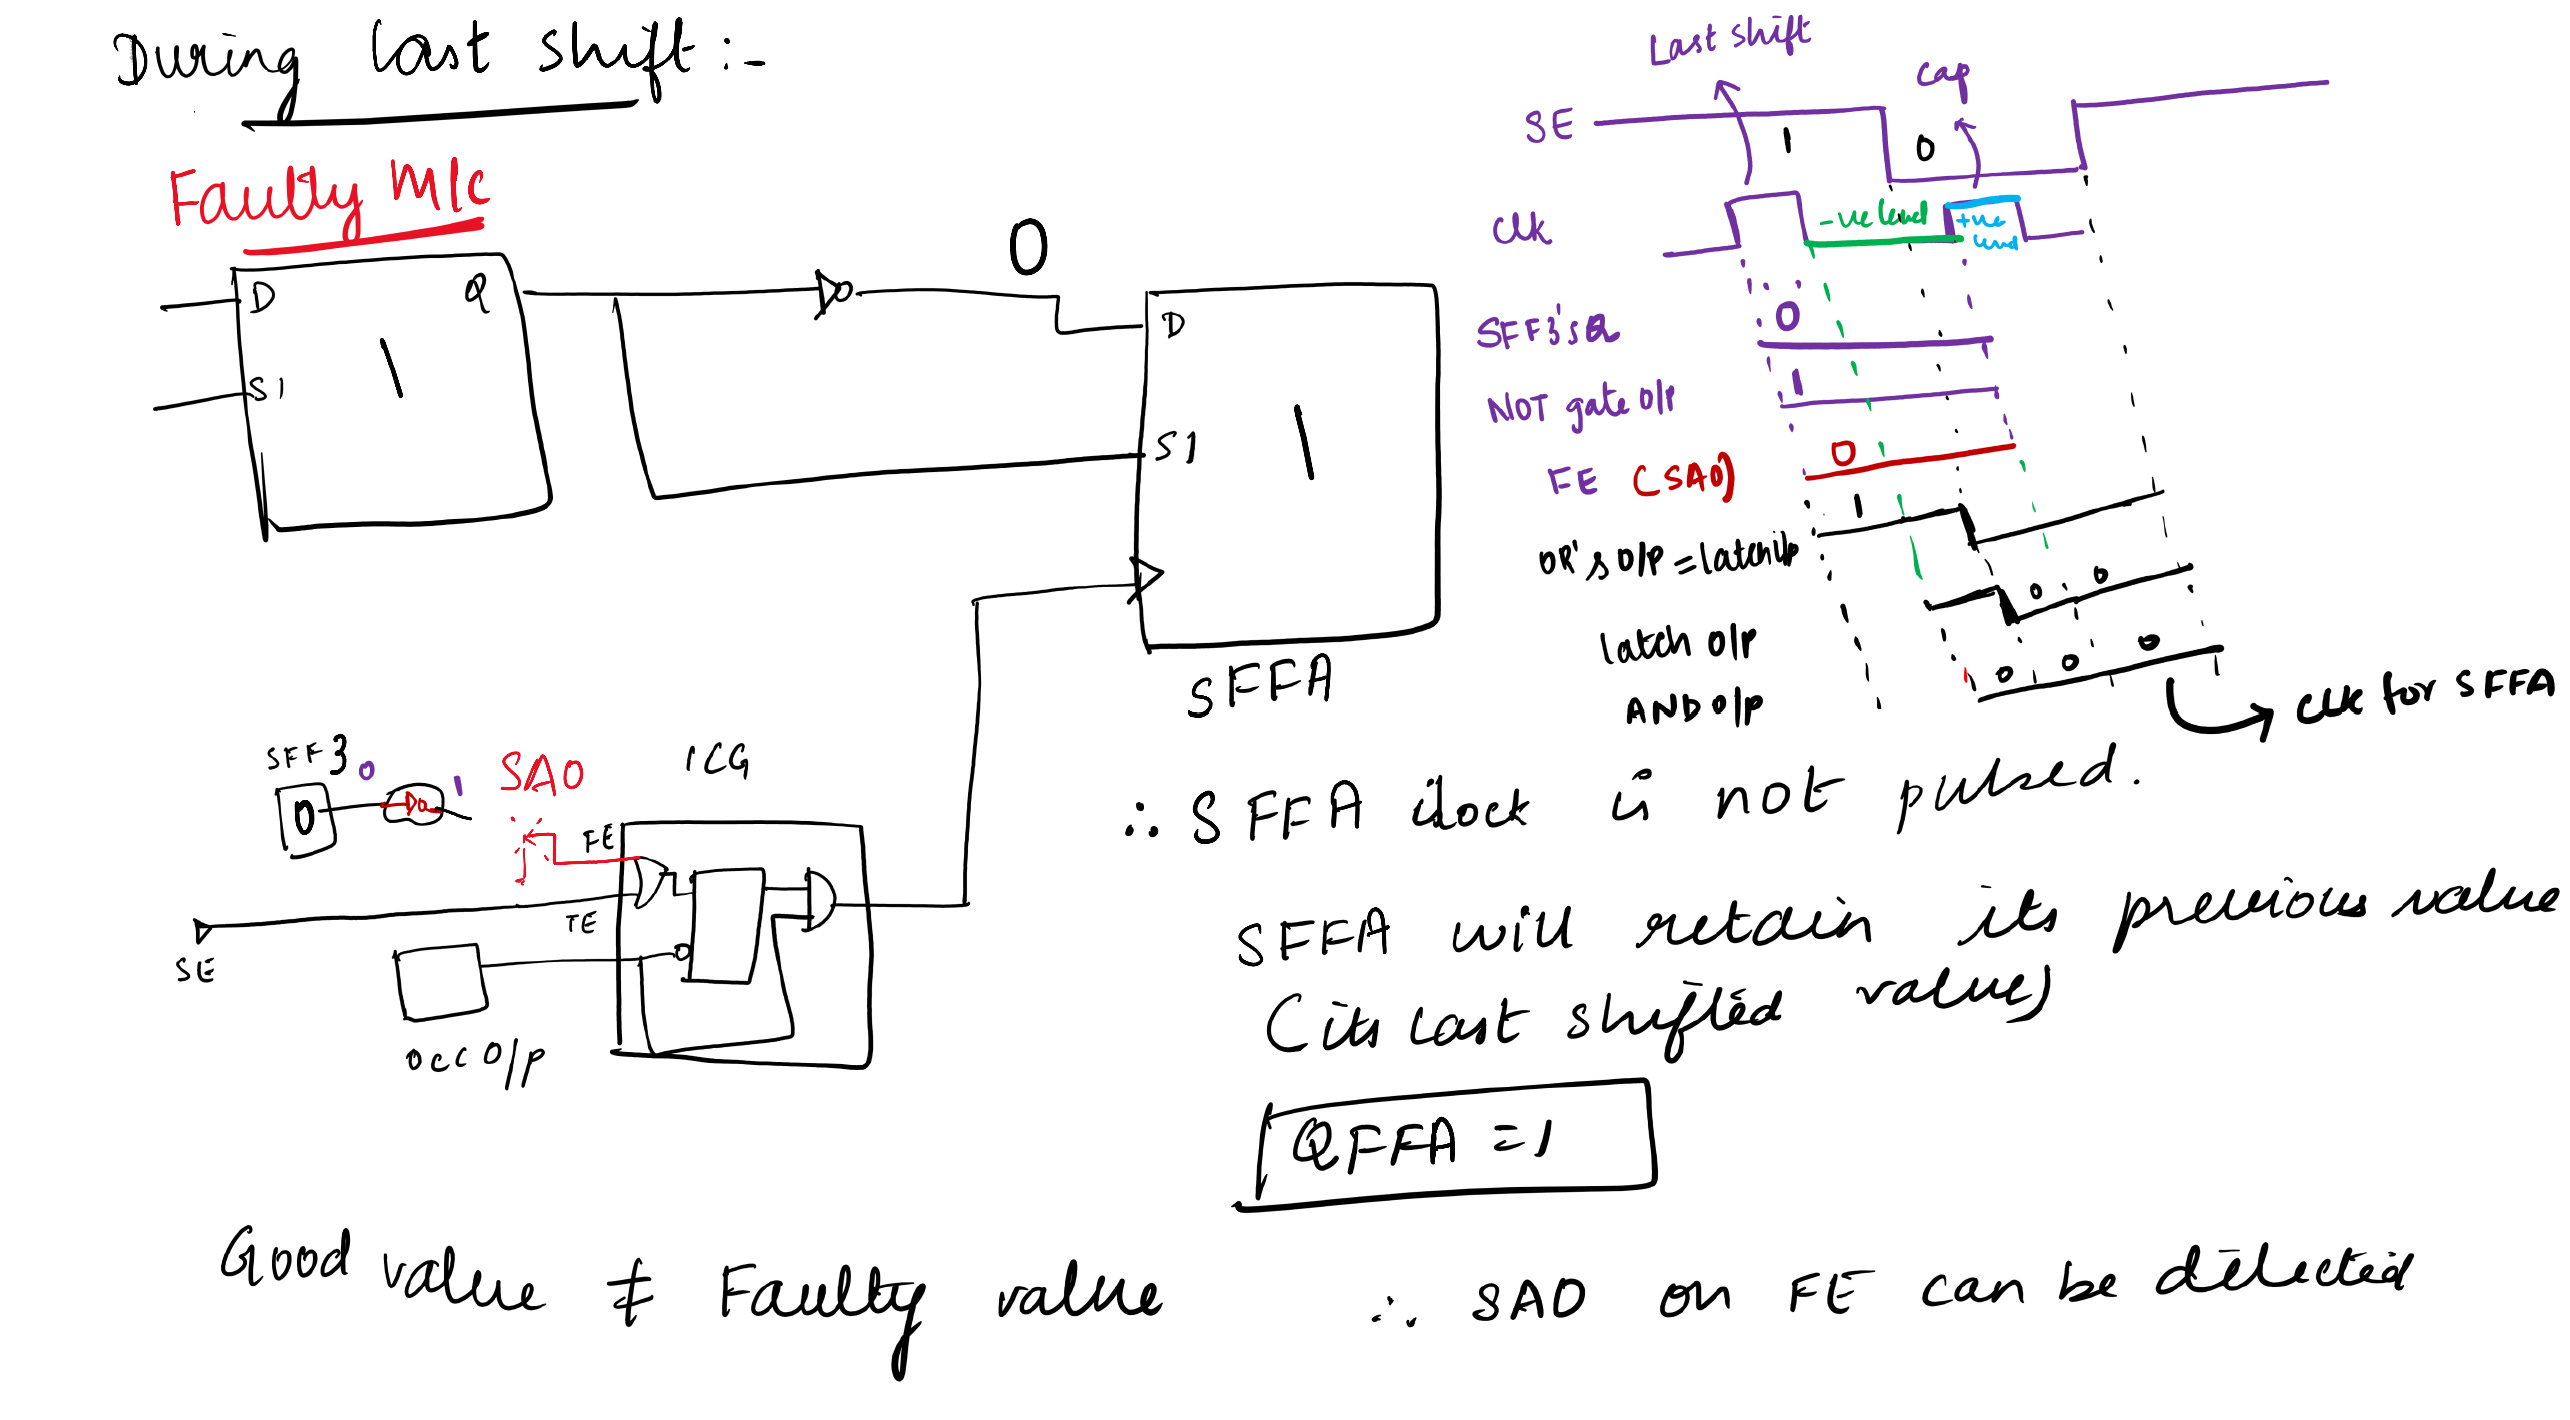 During last shift :-
Faulty M/c
D
Q
1
SI
0
D
SI
1
SFFA
SFF3
0
0
1
SA0
FE
ICG
TE
SE
OCC O/p
Last shift
cap
SE
1
0
Clk
-ve level
+ve level
SFF3's Q
0
NOT gate O/P
1
FE (SA0)
0
OR's O/P = latch i/p
1
latch O/P
0 0
AND O/P
0 0 0
clk for SFFA
∴ SFFA clock is not pulsed.
SFFA will retain its previous value
(its last shifted value)
QFFA = 1
Good value ≠ Faulty value ∴ SA0 on FE can be detected